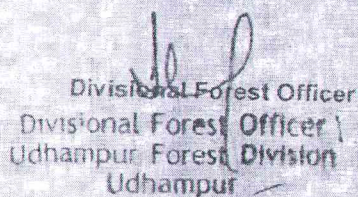 Divisional Forest Officer
Divisional Forest Officer
Udhampur Forest Division
Udhampur